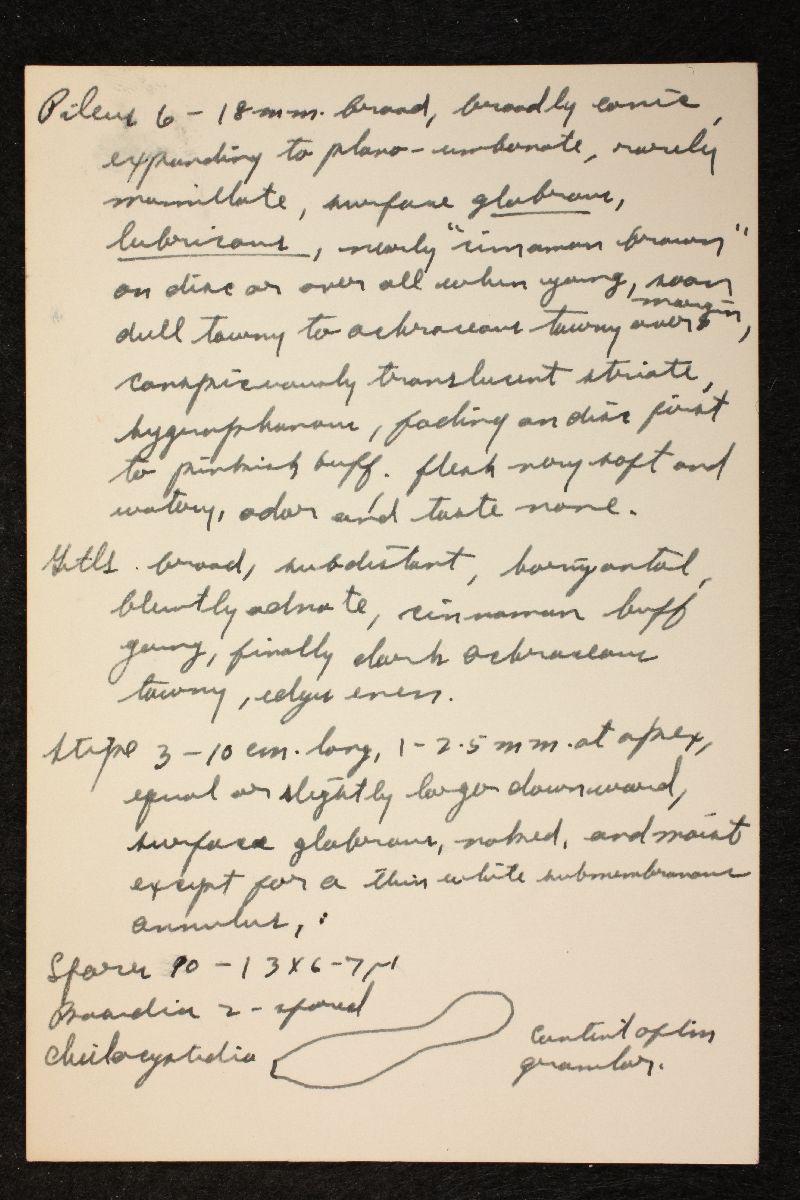 Pileus 6 - 18 mm. broad, broadly conic,
expanding to plano-umbonate, rarely
mamillate, surface glabrous,
lubricous, nearly "cinnamon brown"
on disc or over all when young, soon
dull tawny to ochraceous tawny over margin,
conspicuously translucent striate,
hygrophanous, fading on disc first
to pinkish buff. flesh very soft and
watery, odor and taste none.
Gills. broad, subdistant, horizontal,
bluntly adnate, cinnamon buff
young, finally dark ochraceous
tawny, edges even.
Stipe 3 - 10 cm. long, 1 - 2.5 mm. at apex,
equal or slightly larger downward,
surface glabrous, naked, and moist
except for a thin white submembranous
annulus,
Spores 10 - 13 x 6 - 7 µ
Basidia 2 - spored
Cheilocystidia
content often
granular.